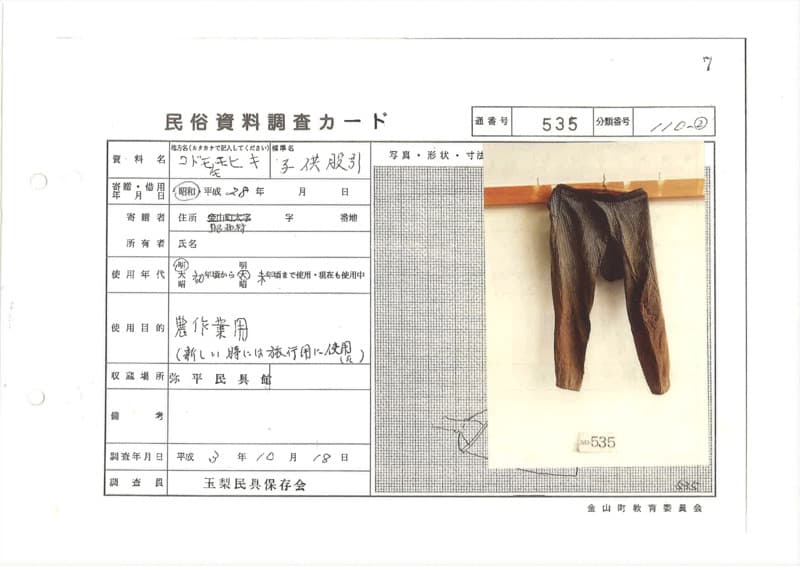 7
民俗資料調査カード
通番号 535 分類番号 110-②
資料名 地方名(カタカナで記入してください) コドモモモヒキ 標準名 子供股引
写真・形状・寸法
寄贈・借用年月日 昭和 平成 28年 月 日
寄贈者 住所 金山町大字 字 番地
昭和村
所有者 氏名
使用年代 明 大 昭 初年頃から 明 大 昭 末年頃まで使用・現在も使用中
使用目的 農作業用
(新しい時には旅行用に使用した)
収蔵場所 弥平民具館
備考
調査年月日 平成 3年 10月 18日
調査員 玉梨民具保存会
No.535
535
金山町教育委員会